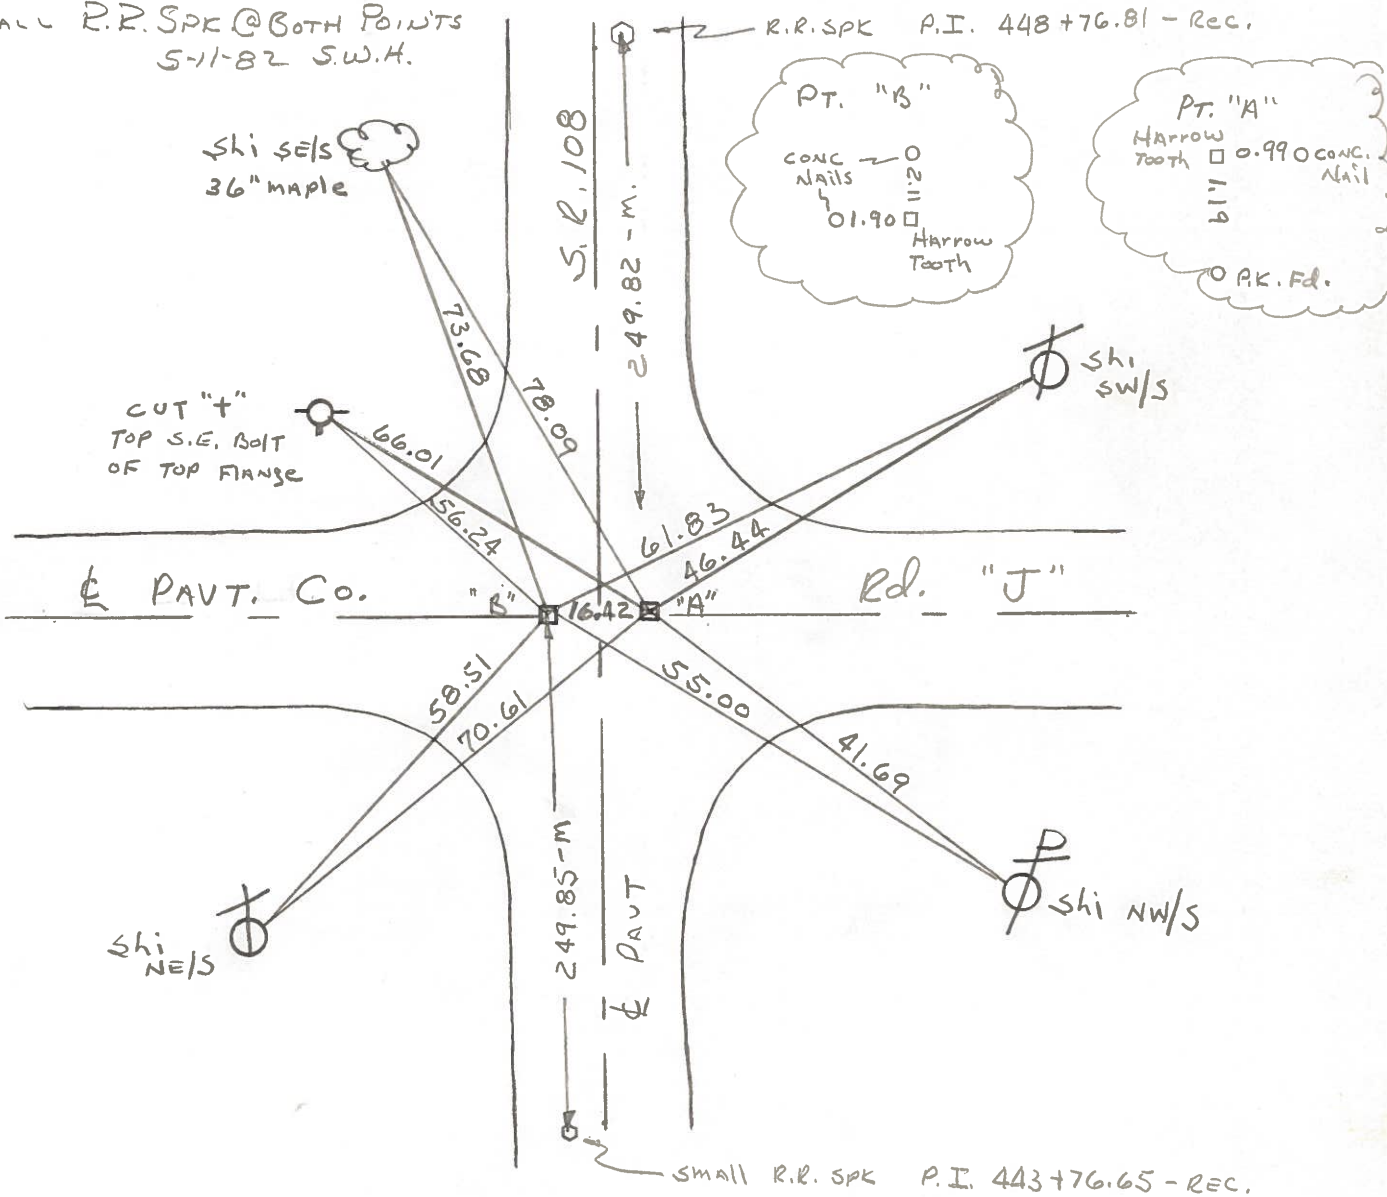 R.R. SPK @ BOTH POINTS
5-11-82 S.W.H.
R.R. SPK P.I. 448+76.81 - REC.
PT. "B"
CONC NAILS
2.11
1.90
HARROW TOOTH
PT. "A"
HARROW TOOTH
0.99
CONC. NAIL
1.19
P.K. Fd.
Shi SE/S
36" MAPLE
S.R. 108
249.82 - M.
73.68
78.09
CUT "+"
TOP S.E. BOLT
OF TOP FLANGE
66.01
56.24
Shi
SW/S
61.83
46.44
℄ PAVT. Co. Rd. "J"
"B" 16.42 "A"
58.51
70.61
55.00
41.69
249.85-M
℄ PAVT
Shi
NE/S
P
Shi NW/S
SMALL R.R. SPK P.I. 443+76.65 - REC.